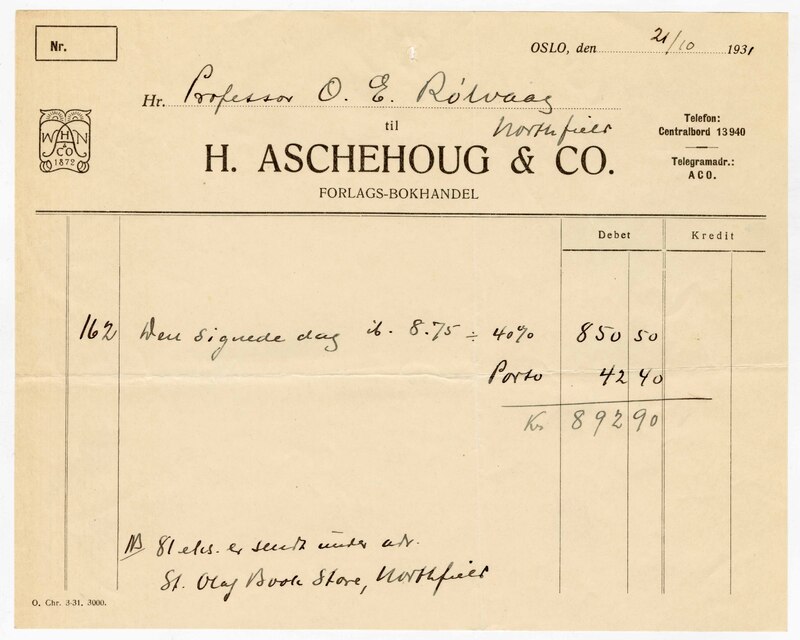 Nr.
OSLO, den 21/10 1931
Hr. Professor O. E. Rölvaag
til Northfield
H. ASCHEHOUG & CO.
FORLAGS-BOKHANDEL
W H N
& CO
1872
Telefon:
Centralbord 13940
Telegramadr.:
ACO.
Debet Kredit
162 Den signede dag ib. 8.75 ÷ 40% 850 50
Porto 42 40
Kr 892 90
NB 81 eks. er sendt under adr.
St. Olaf Book Store, Northfield
O. Chr. 3-31. 3000.